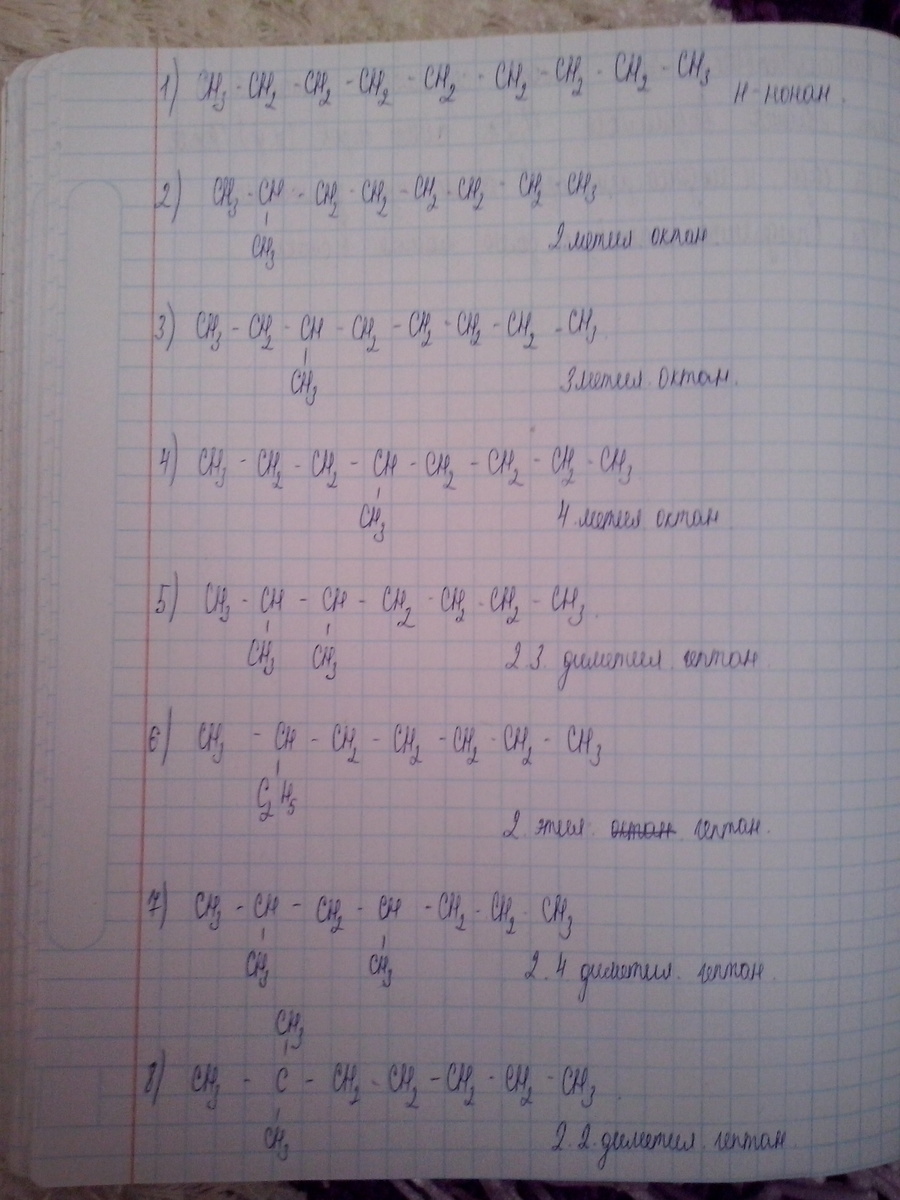 1) CH₃ - CH₂ - CH₂ - CH₂ - CH₂ - CH₂ - CH₂ - CH₂ - CH₃ н-нонан.
2) CH₃ - CH - CH₂ - CH₂ - CH₂ - CH₂ - CH₂ - CH₃
CH₃
2 метил октан
3) CH₃ - CH₂ - CH - CH₂ - CH₂ - CH₂ - CH₂ - CH₃
CH₃
3 метил. октан.
4) CH₃ - CH₂ - CH₂ - CH - CH₂ - CH₂ - CH₂ - CH₃
CH₃
4. метил октан
5) CH₃ - CH - CH - CH₂ - CH₂ - CH₂ - CH₃.
CH₃ CH₃
2.3. диметил. гептан.
6) CH₃ - CH - CH₂ - CH₂ - CH₂ - CH₂ - CH₃
C₂H₅
2. этил. октан гептан.
7) CH₃ - CH - CH₂ - CH - CH₂ - CH₂ - CH₃
CH₃ CH₃
2.4 диметил. гептан.
CH₃
8) CH₃ - C - CH₂ - CH₂ - CH₂ - CH₂ - CH₃.
CH₃
2.2. диметил. гептан